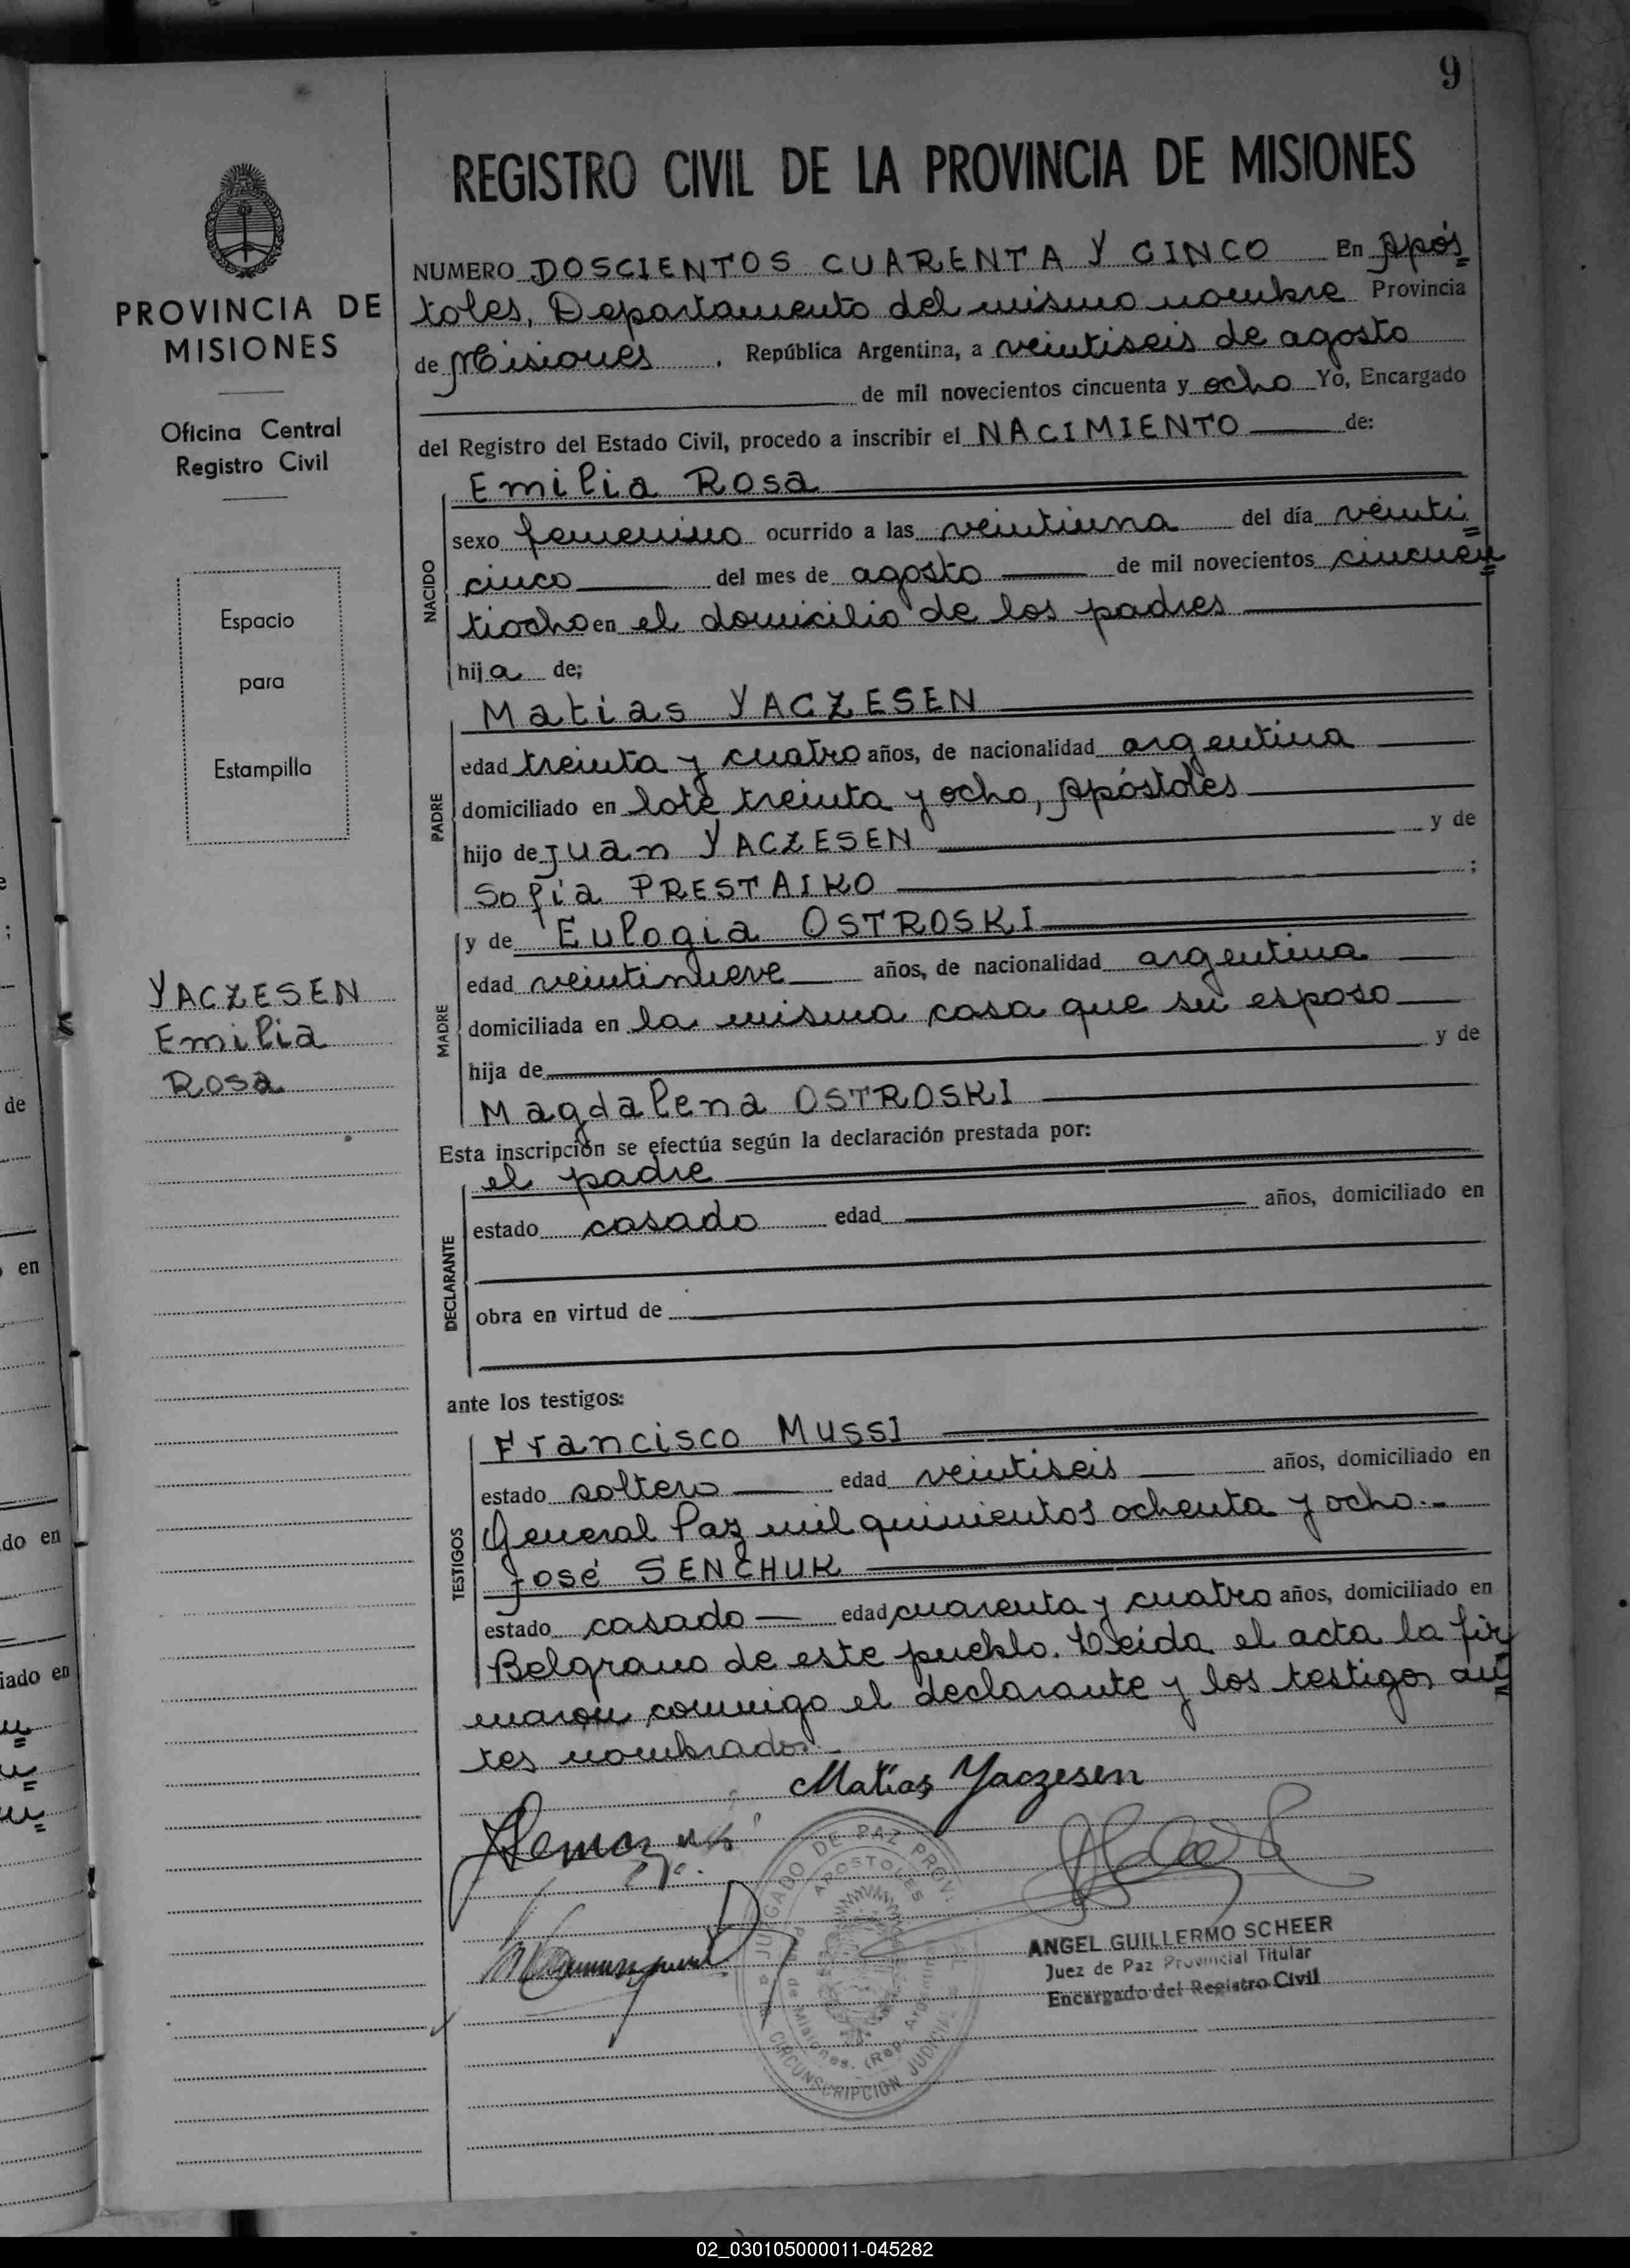 9
REGISTRO CIVIL DE LA PROVINCIA DE MISIONES
PROVINCIA DE
MISIONES
Oficina Central
Registro Civil
Espacio
para
Estampilla
YACZESEN
Emilia
Rosa
NUMERO DOSCIENTOS CUARENTA Y CINCO En Após
toles, Departamento del mismo nombre Provincia
de Misiones, República Argentina, a veintiseis de agosto
de mil novecientos cincuenta y ocho Yo, Encargado
del Registro del Estado Civil, procedo a inscribir el NACIMIENTO de:
NACIDO
Emilia Rosa
sexo femenino ocurrido a las veintiuna del día veinti
cinco del mes de agosto de mil novecientos cincuen
tiocho en el domicilio de los padres
hija de;
PADRE
Matias YACZESEN
edad treinta y cuatro años, de nacionalidad argentina
domiciliado en lote treinta y ocho, Apóstoles
hijo de Juan YACZESEN y de
Sofía PRESTAIKO ;
MADRE
y de Eulogia OSTROSKI
edad veintinueve años, de nacionalidad argentina
domiciliada en la misma casa que su esposo
hija de y de
Magdalena OSTROSKI
Esta inscripción se efectúa según la declaración prestada por:
DECLARANTE
el padre
estado casado edad años, domiciliado en
obra en virtud de
ante los testigos:
TESTIGOS
Francisco MUSSI
estado soltero edad veintiseis años, domiciliado en
General Paz mil quinientos ochenta y ocho.-
José SENCHUK
estado casado edad cuarenta y cuatro años, domiciliado en
Belgrano de este pueblo. Leida el acta la fir
maron conmigo el declarante y los testigos an
tes nombrados.
Matías Yaczesen
JUZGADO DE PAZ PROV.
APOSTOLES
de Misiones. (Rep. Argentina)
CIRCUNSCRIPCION JUDICIAL
ANGEL GUILLERMO SCHEER
Juez de Paz Provincial Titular
Encargado del Registro Civil
de
en
do en
iado en
02_030105000011-045282